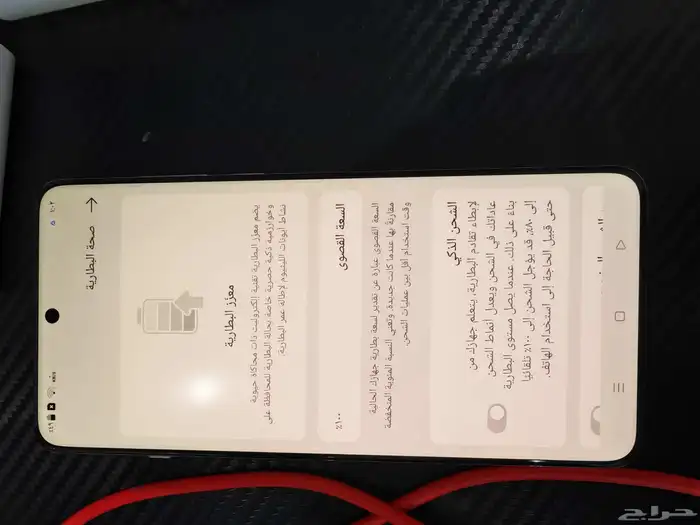 ١:٠٢
٤٩٪
صحة البطارية
معزّز البطارية
يضم معزز البطارية تقنية إلكتروليت ذات محاكاة حيوية
وخوارزمية ذكية حصرية خاصة بحالة البطارية للمحافظة على
نشاط أيونات الليثيوم لإطالة عمر البطارية.
السعة القصوى
٪١٠٠
السعة القصوى عبارة عن تقدير لسعة بطارية جهازك الحالية
مقارنة بها عندما كانت جديدة. وتعني النسبة المئوية المنخفضة
وقت استخدام أقل بين عمليات الشحن.
الشحن الذكي
لإبطاء تقادم البطارية، يتعلم جهازك من
عاداتك في الشحن ويعدل أنماط الشحن
بناءً على ذلك. عندما يصل مستوى البطارية
إلى ٨٠٪، قد يؤجل الشحن إلى ١٠٠٪ تلقائيًا
حتى قبيل الحاجة إلى استخدام الهاتف.
حراج